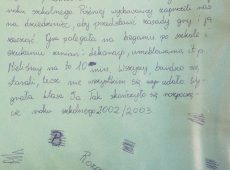 roku szkolnego. Później wychowawcy zaprosili nas
na dziedziniec, aby przedstawić zasady gry i ją
zacząć. Gra polegała na bieganiu po szkole i
szukaniu zmian - dekoracji, umeblowania itp.
Mieliśmy na to 10 min. Wszyscy bardzo się
starali, lecz nie wszystkim się udało. Wy-
grała klasa Ia. Tak skończyło się rozpoczę-
cie roku szkolnego 2002/2003.